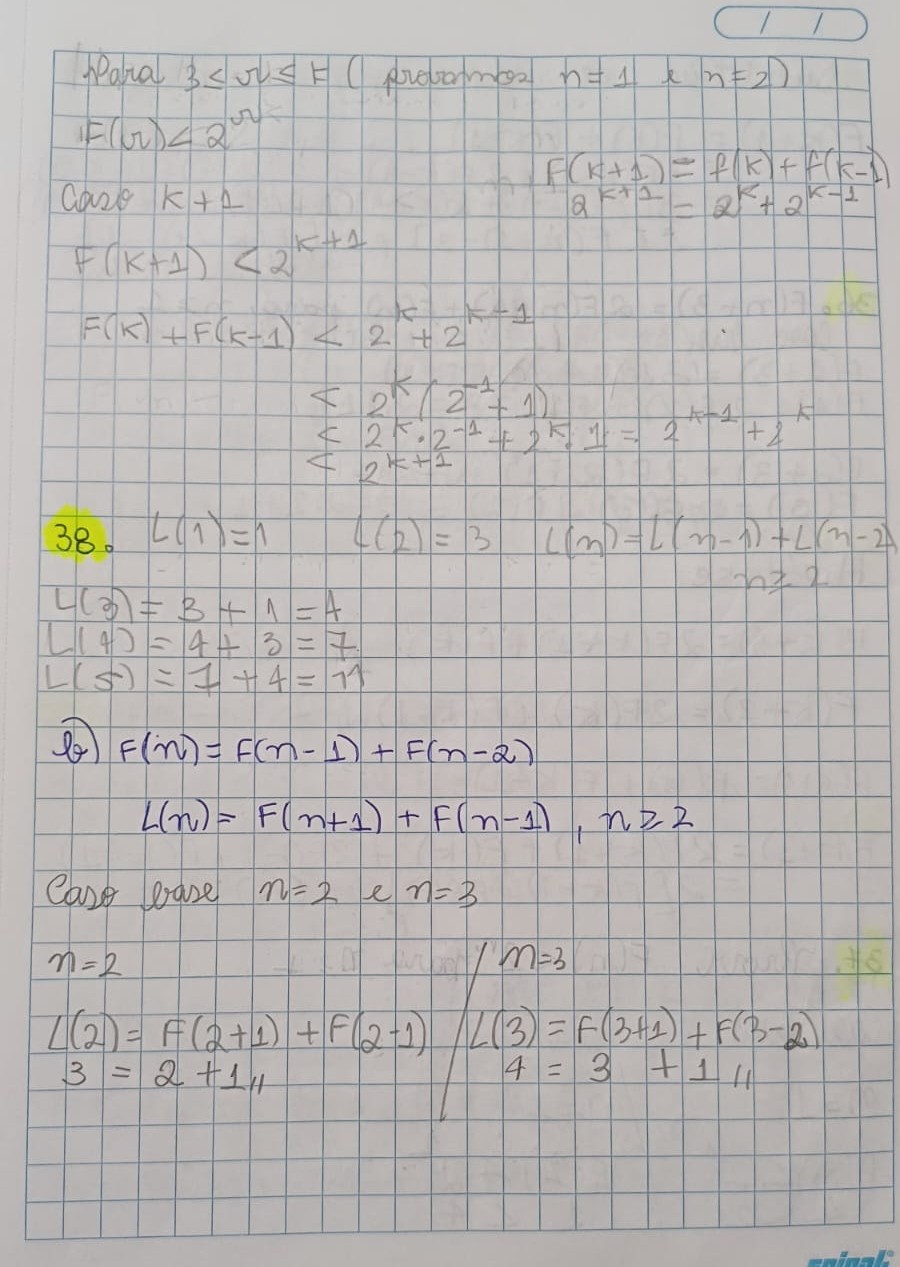 / /
Para 3 ≤ r ≤ k ( provamos n=1 e n=2)
F(r) < 2^r
F(k+1) = f(k) + f(k-1)
Caso k+1
2^{k+1} = 2^k + 2^{k-1}
F(k+1) < 2^{k+1}
F(k) + F(k-1) < 2^k + 2^{k-1}
< 2^k (2^{-1} + 1)
< 2^k · 2^{-1} + 2^k · 1 = 2^{k-1} + 2^k
< 2^{k+1}
38. L(1)=1 L(2) = 3 L(n) = L(n-1) + L(n-2)
n ≥ 2
L(3) = 3 + 1 = 4
L(4) = 4 + 3 = 7
L(5) = 7 + 4 = 11
b) F(n) = F(n-1) + F(n-2)
L(n) = F(n+1) + F(n-1) , n ≥ 2
Caso base n=2 e n=3
n=2 / n=3
L(2) = F(2+1) + F(2-1) / L(3) = F(3+1) + F(3-2)
3 = 2 + 1 // 4 = 3 + 1 //